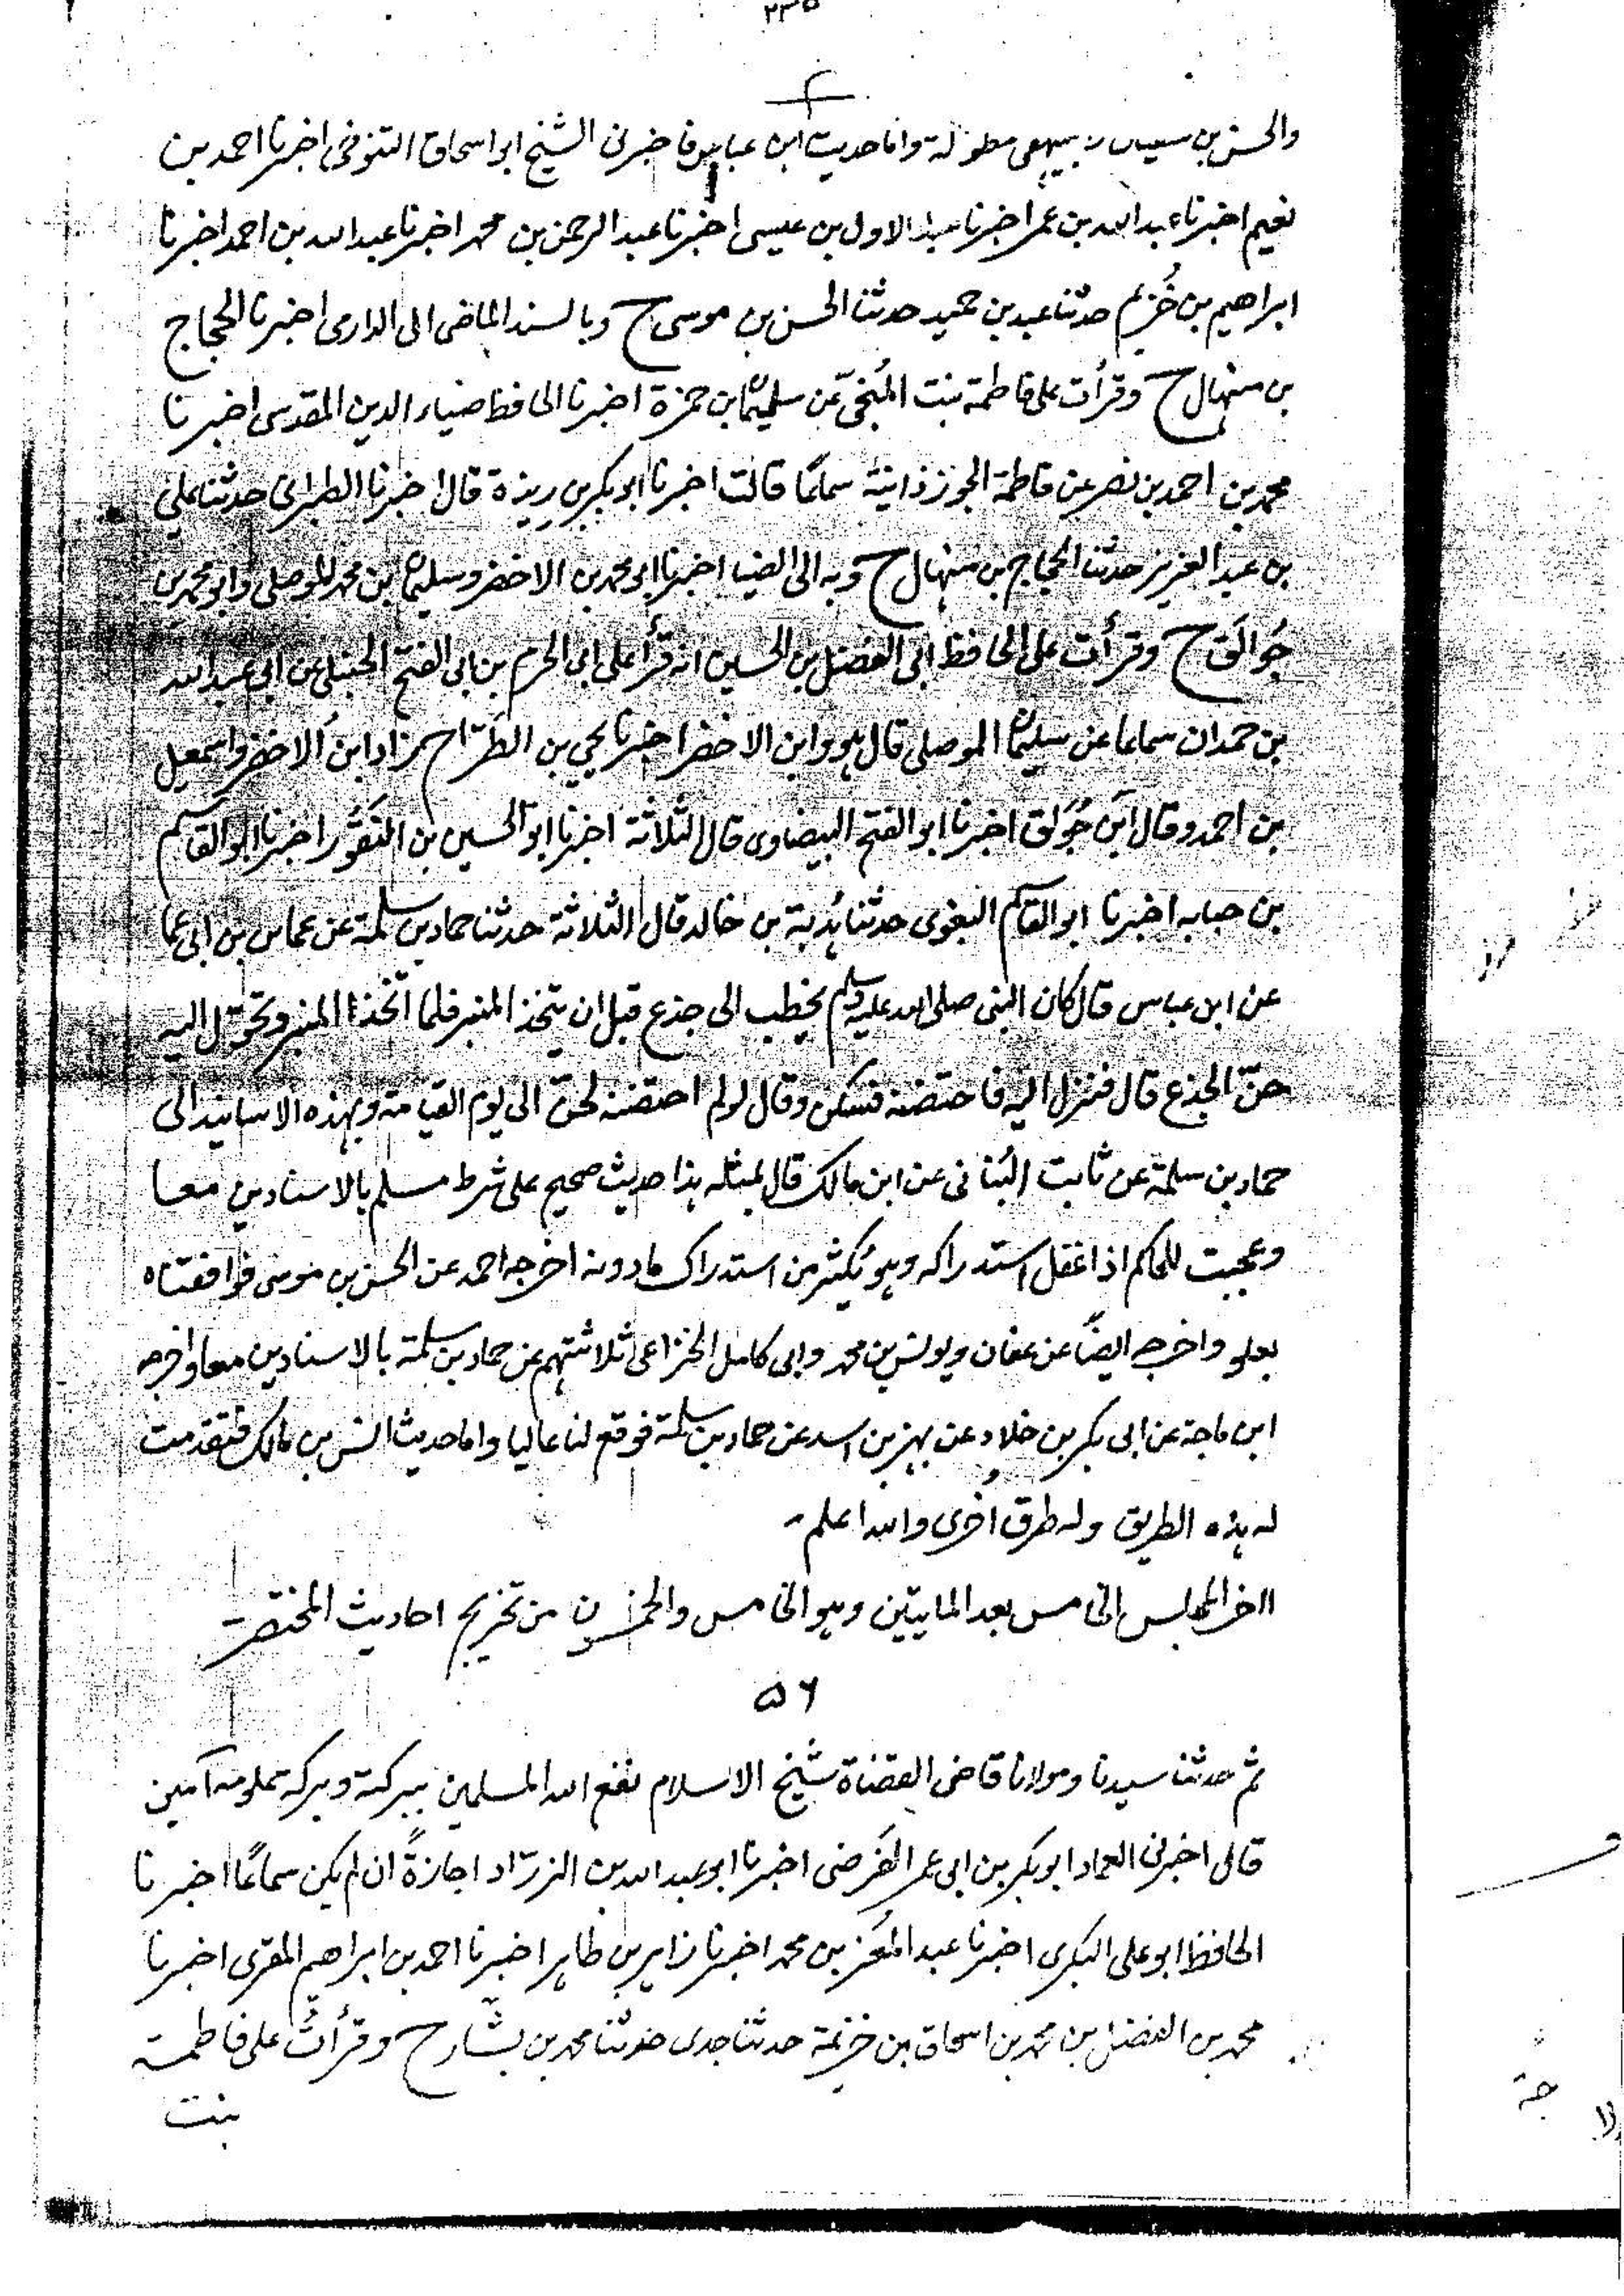 ٢٣٥
والحسن بن سعيد بيهقى مطولة واما حديث ابن عباس فاخبرنى الشيخ ابو اسحاق التنوخى اخبرنا احمد بن
نعيم اخبرنا عبد الله بن عمر اخبرنا عبد الاول بن عيسى اخبرنا عبد الرحمن بن محمد اخبرنا عبد الله بن احمد اخبرنا
ابراهيم بن خُزيم حدثنا عبد بن حميد حدثنا الحسن بن موسى ح وبالسند الماضى الى الدارمى اخبرنا الحجاج
بن منهال ح وقرأت على فاطمة بنت المُنَجّى عن سليمان بن حمزة اخبرنا الحافظ ضياء الدين المقدسى اخبرنا
محمد بن احمد بن نصر عن فاطمة الجوزذانية سماعًا قالت اخبرنا ابو بكر بن ريذة قال اخبرنا الطبرانى حدثنا على
بن عبد العزيز حدثنا الحجاج بن منهال ح وبه الى الضيا اخبرنا ابو محمد بن الاخضر وسليمان بن محمد الموصلى وابو محمد بن
جُوالَق ح وقرأت على الحافظ ابى الفضل بن الحسين انه قرأ على ابى الحرم بن ابى الفتح الحنبلى عن ابى عبد الله
بن حمدان سماعا عن سليمان الموصلى قال هو وابن الاخضر اخبرنا يحيى بن الطَرّاح زاد ابن الاخضر واسمعيل
بن احمد وقال ابن جُوالَق اخبرنا ابو الفتح البيضاوى قال الثلاثة اخبرنا ابو الحسين بن النَقُّور اخبرنا ابو القاسم
بن حبابه اخبرنا ابو القاسم البغوى حدثنا هُدبة بن خالد قال الثلاثة حدثنا حماد بن سلمة عن عمار بن ابى عما
عن ابن عباس قال كان النبى صلى الله عليه وسلم يخطب الى جذع قبل ان يتخذ المنبر فلما اتخذ المنبر وتحوّل اليه
حنّ الجذع قال فنزل اليه فاحتضنه فسكن وقال لو لم احتضنه لحنّ الى يوم القيامة وبهذه الاسانيد الى
حماد بن سلمة عن ثابت البُنانى عن ابن مالك قال بمثله هذا حديث صحيح على شرط مسلم بالاسنادين معا
وعجبت للحاكم اذ اغفل استدراكه وهو يُكثر من استدراك مادونه اخرجه احمد عن الحسن بن موسى فوافقناه
بعلو واخرجه ايضًا عن عفان ويونس بن محمد وابى كامل الخزاعى ثلاثتهم عن حماد بن سلمة بالاسنادين معا واخرجه
ابن ماجة عن ابى بكر بن خلاد عن بهز بن اسد عن حماد بن سلمة فوقع لنا عاليا واما حديث انس بن مالك فتقدمت
له هذه الطريق وله طرق اُخرى والله اعلم
اخر المجلس الخامس بعد المايتين وهو الخامس والخمسون من تخريج احاديث المختصر
٥٦
ثم حدثنا سيدنا ومولانا قاضى القضاة شيخ الاسلام نفع الله المسلمين ببركته وبركة علومه آمين
قال اخبرنى العماد ابو بكر بن ابى عمر الفَرضى اخبرنا ابو عبد الله بن الزرّاد اجازةً ان لم يكن سماعًا اخبرنا
الحافظ ابو على البكرى اخبرنا عبد المُعز بن محمد اخبرنا زاهر بن طاهر اخبرنا احمد بن ابراهيم المقرى اخبرنا
محمد بن الفضل بن محمد بن اسحاق بن خزيمة حدثنا جدى حدثنا محمد بن بشّار ح وقرأت على فاطمة
بنت